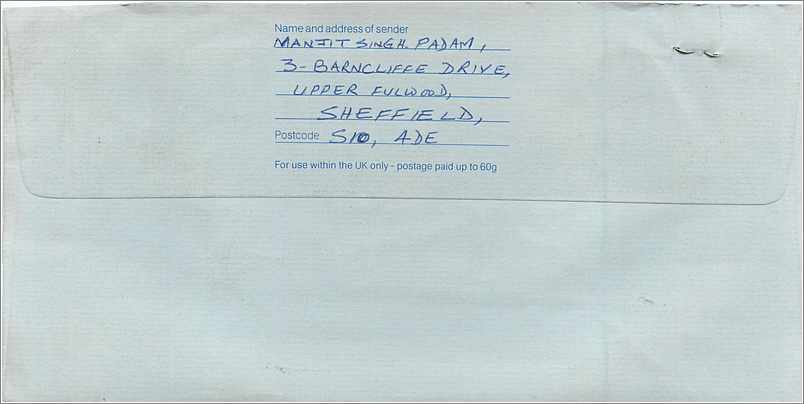 Name and address of sender
MANJIT SINGH. PADAM,
3- BARNCLIFFE DRIVE,
UPPER FULWOOD,
SHEFFIELD,
Postcode S10, ADE
For use within the UK only - postage paid up to 60g